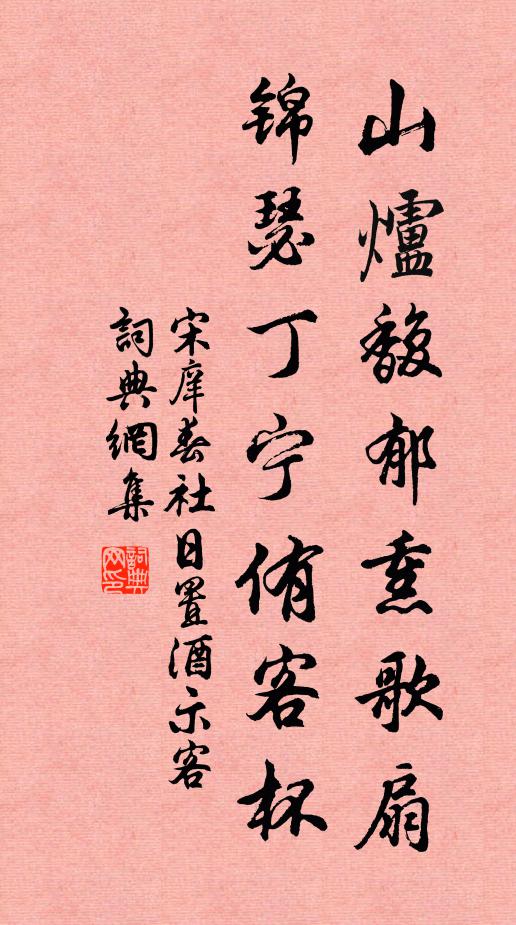 山爐馥郁熏歌扇
锦瑟丁宁侑客杯
宋庠春社日置酒示客
詞典網集
詞典
网印